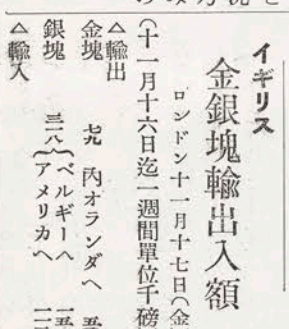 イギリス
金銀塊輸出入額
ロンドン十一月十七日(金
(十一月十六日迄一週間單位千磅
△輸出
金塊 七九 內オランダへ
銀塊 三一八{ベルギーへ
アメリカへ
△輸入